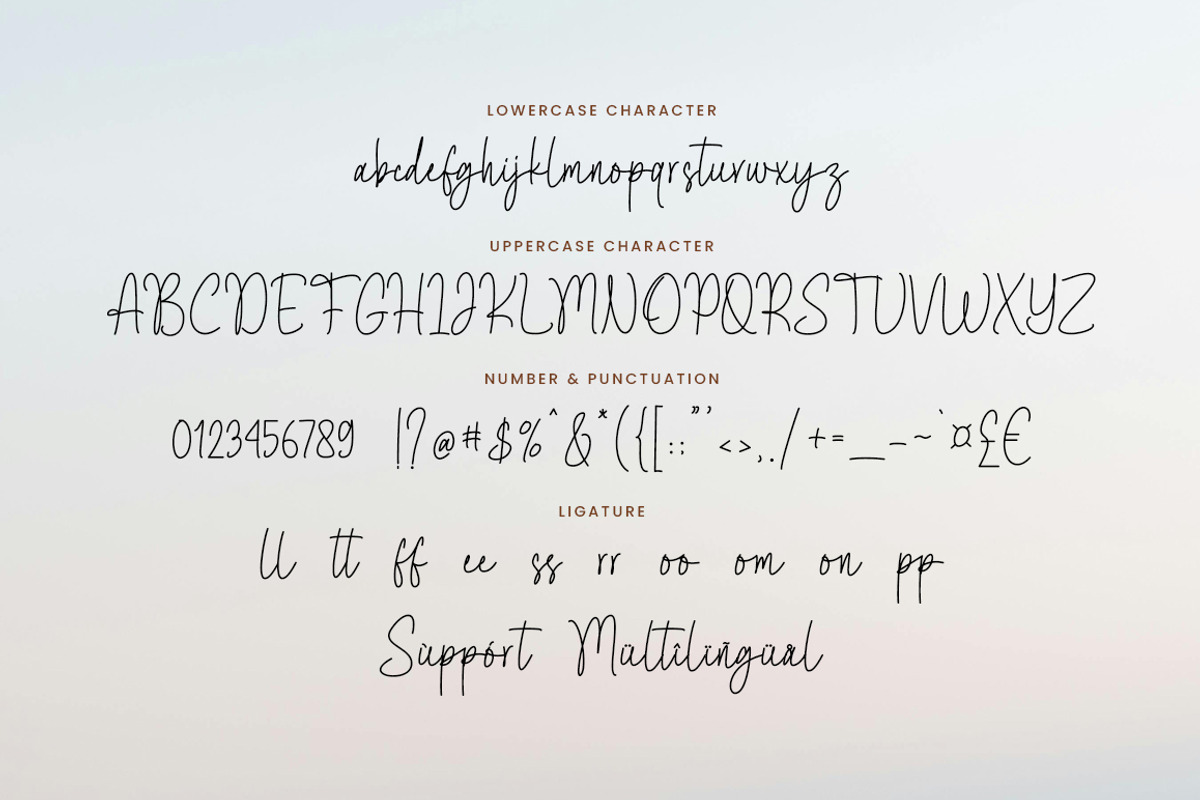 LOWERCASE CHARACTER
abcdefghijklmnopqrstuvwxyz
UPPERCASE CHARACTER
ABCDEFGHIJKLMNOPQRSTUVWXYZ
NUMBER & PUNCTUATION
0123456789 !?@#$%^&*({[:;"'<>,./+=_-~`¤£€
LIGATURE
ll tt ff ee ss rr oo om on pp
Sùppórt Mültîlïñgüål